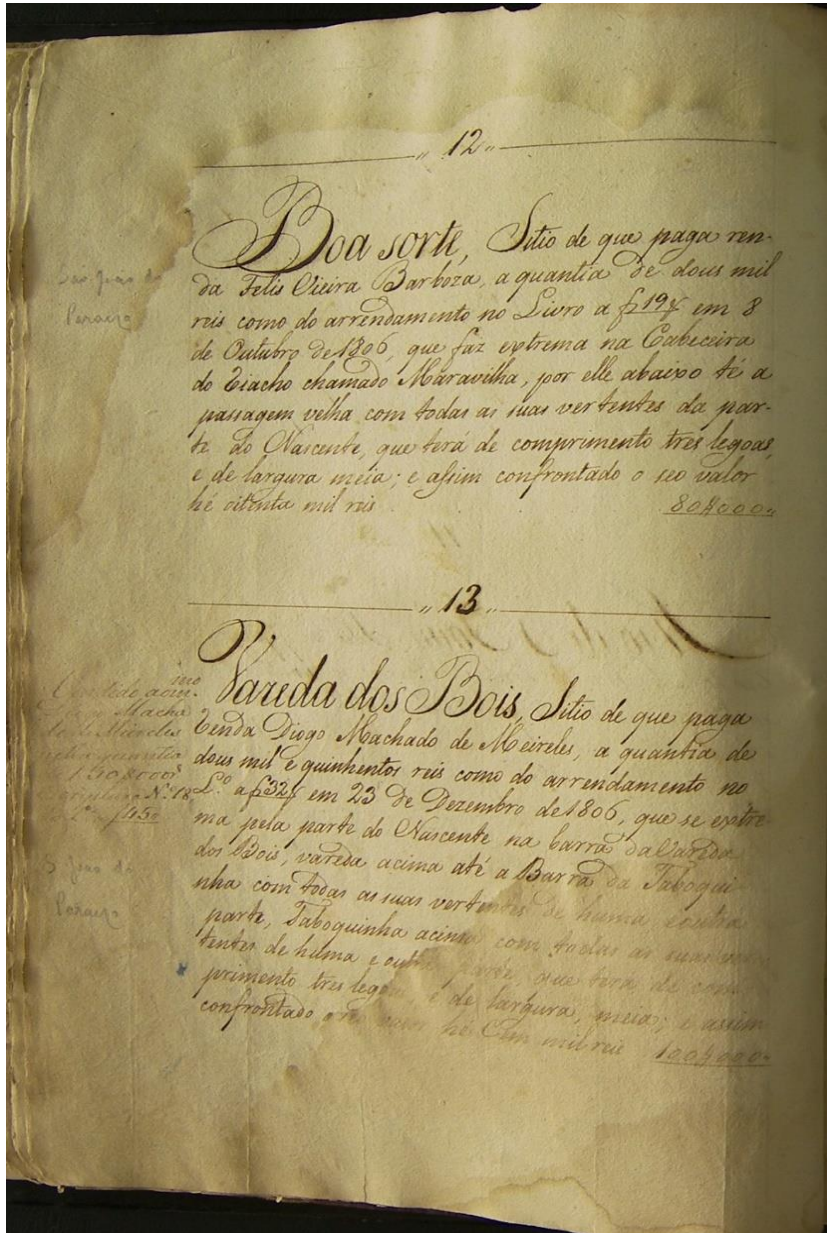 „ 12 „
Boa sorte, Sitio de que paga ren-
da Felis Vieira Barboza, a quantia de dous mil
reis como do arrendamento no Livro a f 194 em 8
de Outubro de 1806, que faz extrema na Cabeceira
do Riacho chamado Maravilha, por elle abaixo té a
passagem velha com todas as suas vertentes da par-
te do Nascente, que terá de comprimento tres legoas,
e de largura meia; e assim confrontado o seo valor
hé oitenta mil reis 80$000„
São João do
„ 13 „
Vareda dos Bois, Sitio de que paga
Renda Diogo Machado de Meireles, a quantia de
dous mil e quinhentos reis como do arrendamento no
L.º a f 324 em 23 de Dezembro de 1806, que se extre-
ma pela parte do Nascente na barra da Vareda
dos Bois, vareda acima até a Barra da Taboqui
nha com todas as suas vertentes de huma e outra
parte, Taboquinha acima com todas as suas ver
tentes de huma e outra parte, que terá de com
primento tres legoas e de largura, meia; e assim
confrontado o seo valor hé Cem mil reis 100$000„
Vendido ao m.mo
Diogo Macha
do de Meireles
pela quantia
150$000
N.º 18
L.º f 450
S. João do